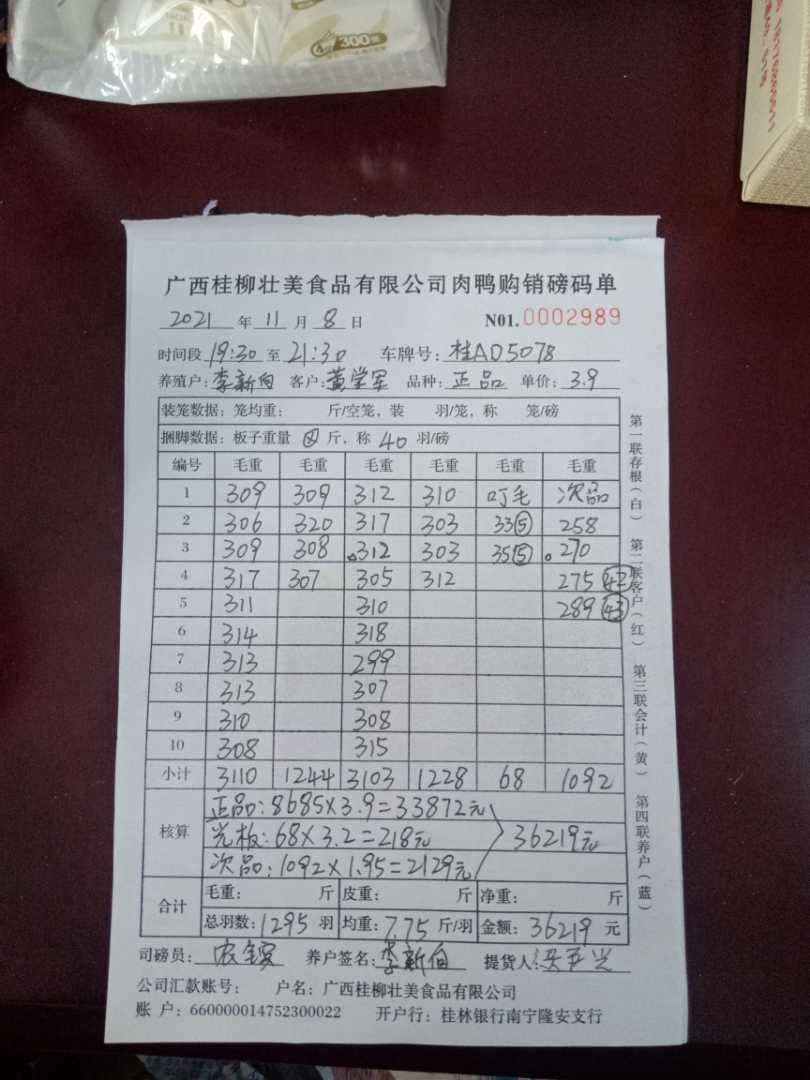 300张
广西桂柳壮美食品有限公司肉鸭购销磅码单
2021 年 11 月 8 日 N01.0002989
时间段 19:30 至 21:30 车牌号：桂AD5078
养殖户：李新向 客户：黄学军 品种：正品 单价：3.9
装笼数据：笼均重： 斤/空笼，装 羽/笼，称 笼/磅
捆脚数据：板子重量 斤，称 40 羽/磅
编号 毛重 毛重 毛重 毛重 毛重 毛重
1 309 309 312 310 叮毛 次品
2 306 320 317 303 33⑤ 258
3 309 308 312 303 35⑤ 270
4 317 307 305 312 275 ㊷
5 311 310 289 ㊸
6 314 318
7 313 299
8 313 307
9 310 308
10 308 315
小计 3110 1244 3103 1228 68 1092
核算
正品：8685×3.9=33872元
光板：68×3.2=218元
次品：1092×1.95=2129元
36219元
合计
毛重： 斤 皮重： 斤 净重： 斤
总羽数：1295 羽 均重：7.75 斤/羽 金额：36219 元
司磅员： 养户签名：李新向 提货人：
公司汇款账号： 户名：广西桂柳壮美食品有限公司
账 户：660000014752300022 开户行：桂林银行南宁隆安支行
第一联存根（白） 第二联客户（红） 第三联会计（黄） 第四联养户（蓝）